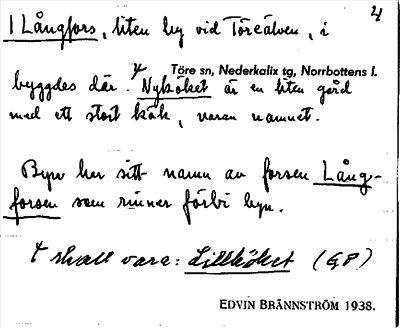 4
I Långfors, liten by vid Töreälven, i
Töre sn, Nederkalix tg, Norrbottens l.
byggdes där. + Nyköket är en liten gård
med ett stort kök, varav namnet.
Byn har sitt namn av forsen Lång-
forsen som rinner förbi byn.
+ skall vara: Lillköket (GP)
EDVIN BRÄNNSTRÖM 1938.